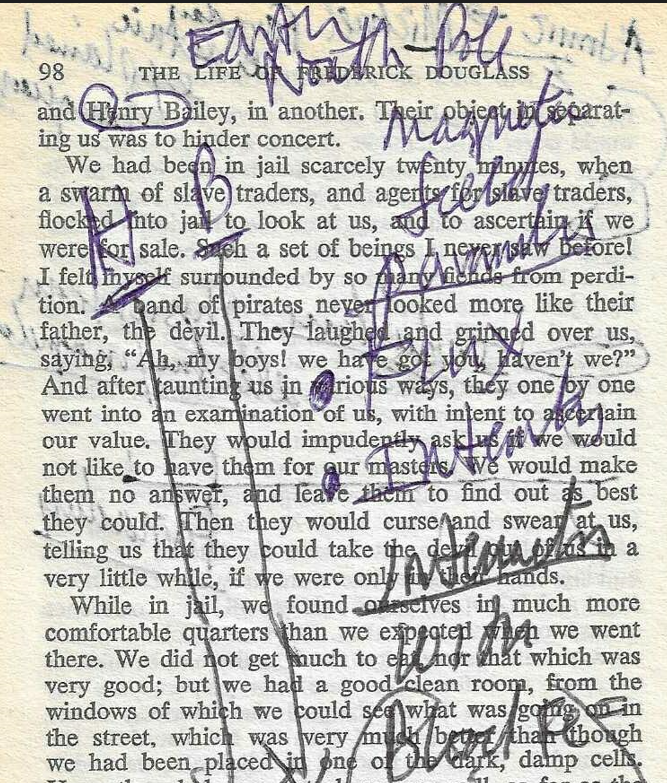 Earth
North Pole
98 THE LIFE OF FREDERICK DOUGLASS
and Henry Bailey, in another. Their object in separat-
Magnetic
ing us was to hinder concert.
We had been in jail scarcely twenty minutes, when
B
a swarm of slave traders, and agents for slave traders,
field
H
flocked into jail to look at us, and to ascertain if we
were for sale. Such a set of beings I never saw before!
I felt myself surrounded by so many fiends from perdi-
tion. A band of pirates never looked more like their
father, the devil. They laughed and grinned over us,
saying, “Ah, my boys! we have got you, haven’t we?”
Flux
And after taunting us in various ways, they one by one
went into an examination of us, with intent to ascertain
our value. They would impudently ask us if we would
Intensity
not like to have them for our masters. We would make
them no answer, and leave them to find out as best
they could. Then they would curse and swear at us,
telling us that they could take the devil out of us in a
very little while, if we were only in their hands.
While in jail, we found ourselves in much more
comfortable quarters than we expected when we went
with
there. We did not get much to eat, nor that which was
very good; but we had a good clean room, from the
windows of which we could see what was going on in
Blood
the street, which was very much better than though
we had been placed in one of the dark, damp cells.